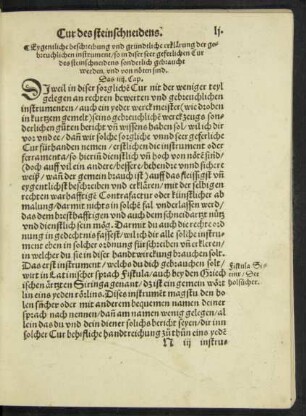 Cur des steinschneidens.
lj.
¶ Eygentliche beschreibung vnd gründtliche erklärung der ge-
breuchlichen instrument / so in diser seer geferlichen Cur
des steinschneidens sonderlich gebraucht
werden / vnd von nöten sind.
Das iiij. Cap.
DJweil in diser sorgliche Cur nit der weniger teyl
gelegen an rechten bewerten vnd gebreuchlichen
instrumenten / auch ein yeder werckmeister (wie droben
in kurtzem gemelt) seins gebreuchliche werckzeugs son-
derlichen guten bericht vñ wissens haben sol / wil ich dir
vor vnd / dañ wir solche sorgliche vnnd seer geferliche
Cur für handen nemen / erstlichen die instrument oder
ferramenta / so hierzu dienstlich vñ hoch von nöte sind /
(doch auff vil ein andre / besser / behender vnnd sichere
weiß / dann gemein im brauch ist) auff das fleissigst vñ
eygentlichst beschreiben vnd erklären / mit der selbigen
rechten warhafftige Contrafactur oder künstlicher ab
malung / darmit nichts in solche fal vnderlassen werd /
das dem bresthafftigen vnd auch dem schneidartzt nütz
vnd dienstlich sein mög. Darmit du auch die rechte ord
nung in gedechtnis fassest / wil ich dir alle solche instru-
ment eben in solcher ordnung fürschreiben vñ erkleren /
in welcher du sie in diser handtwirckung brauchen solt.
Das erst instrument / welchs du dich gebrauchen solt /
wirt in Lateinischer sprach Fistula / auch bey den Griech
ischen ärtzten Siringa genant / ist ein gemein wäx
lin eins yeden rörlins. Dises instrumet magstu den ho
len sucher oder mit anderem bequemem namen deiner
sprach nach nennen / dañ am namen wenig gelegen / al
lein das du vnd dein diener solichs bericht seyen / dir inn
solcher Cur behilfliche handtreichung zů thůn eins yede
Fistula Si-
holsucher.
N iij
instru-